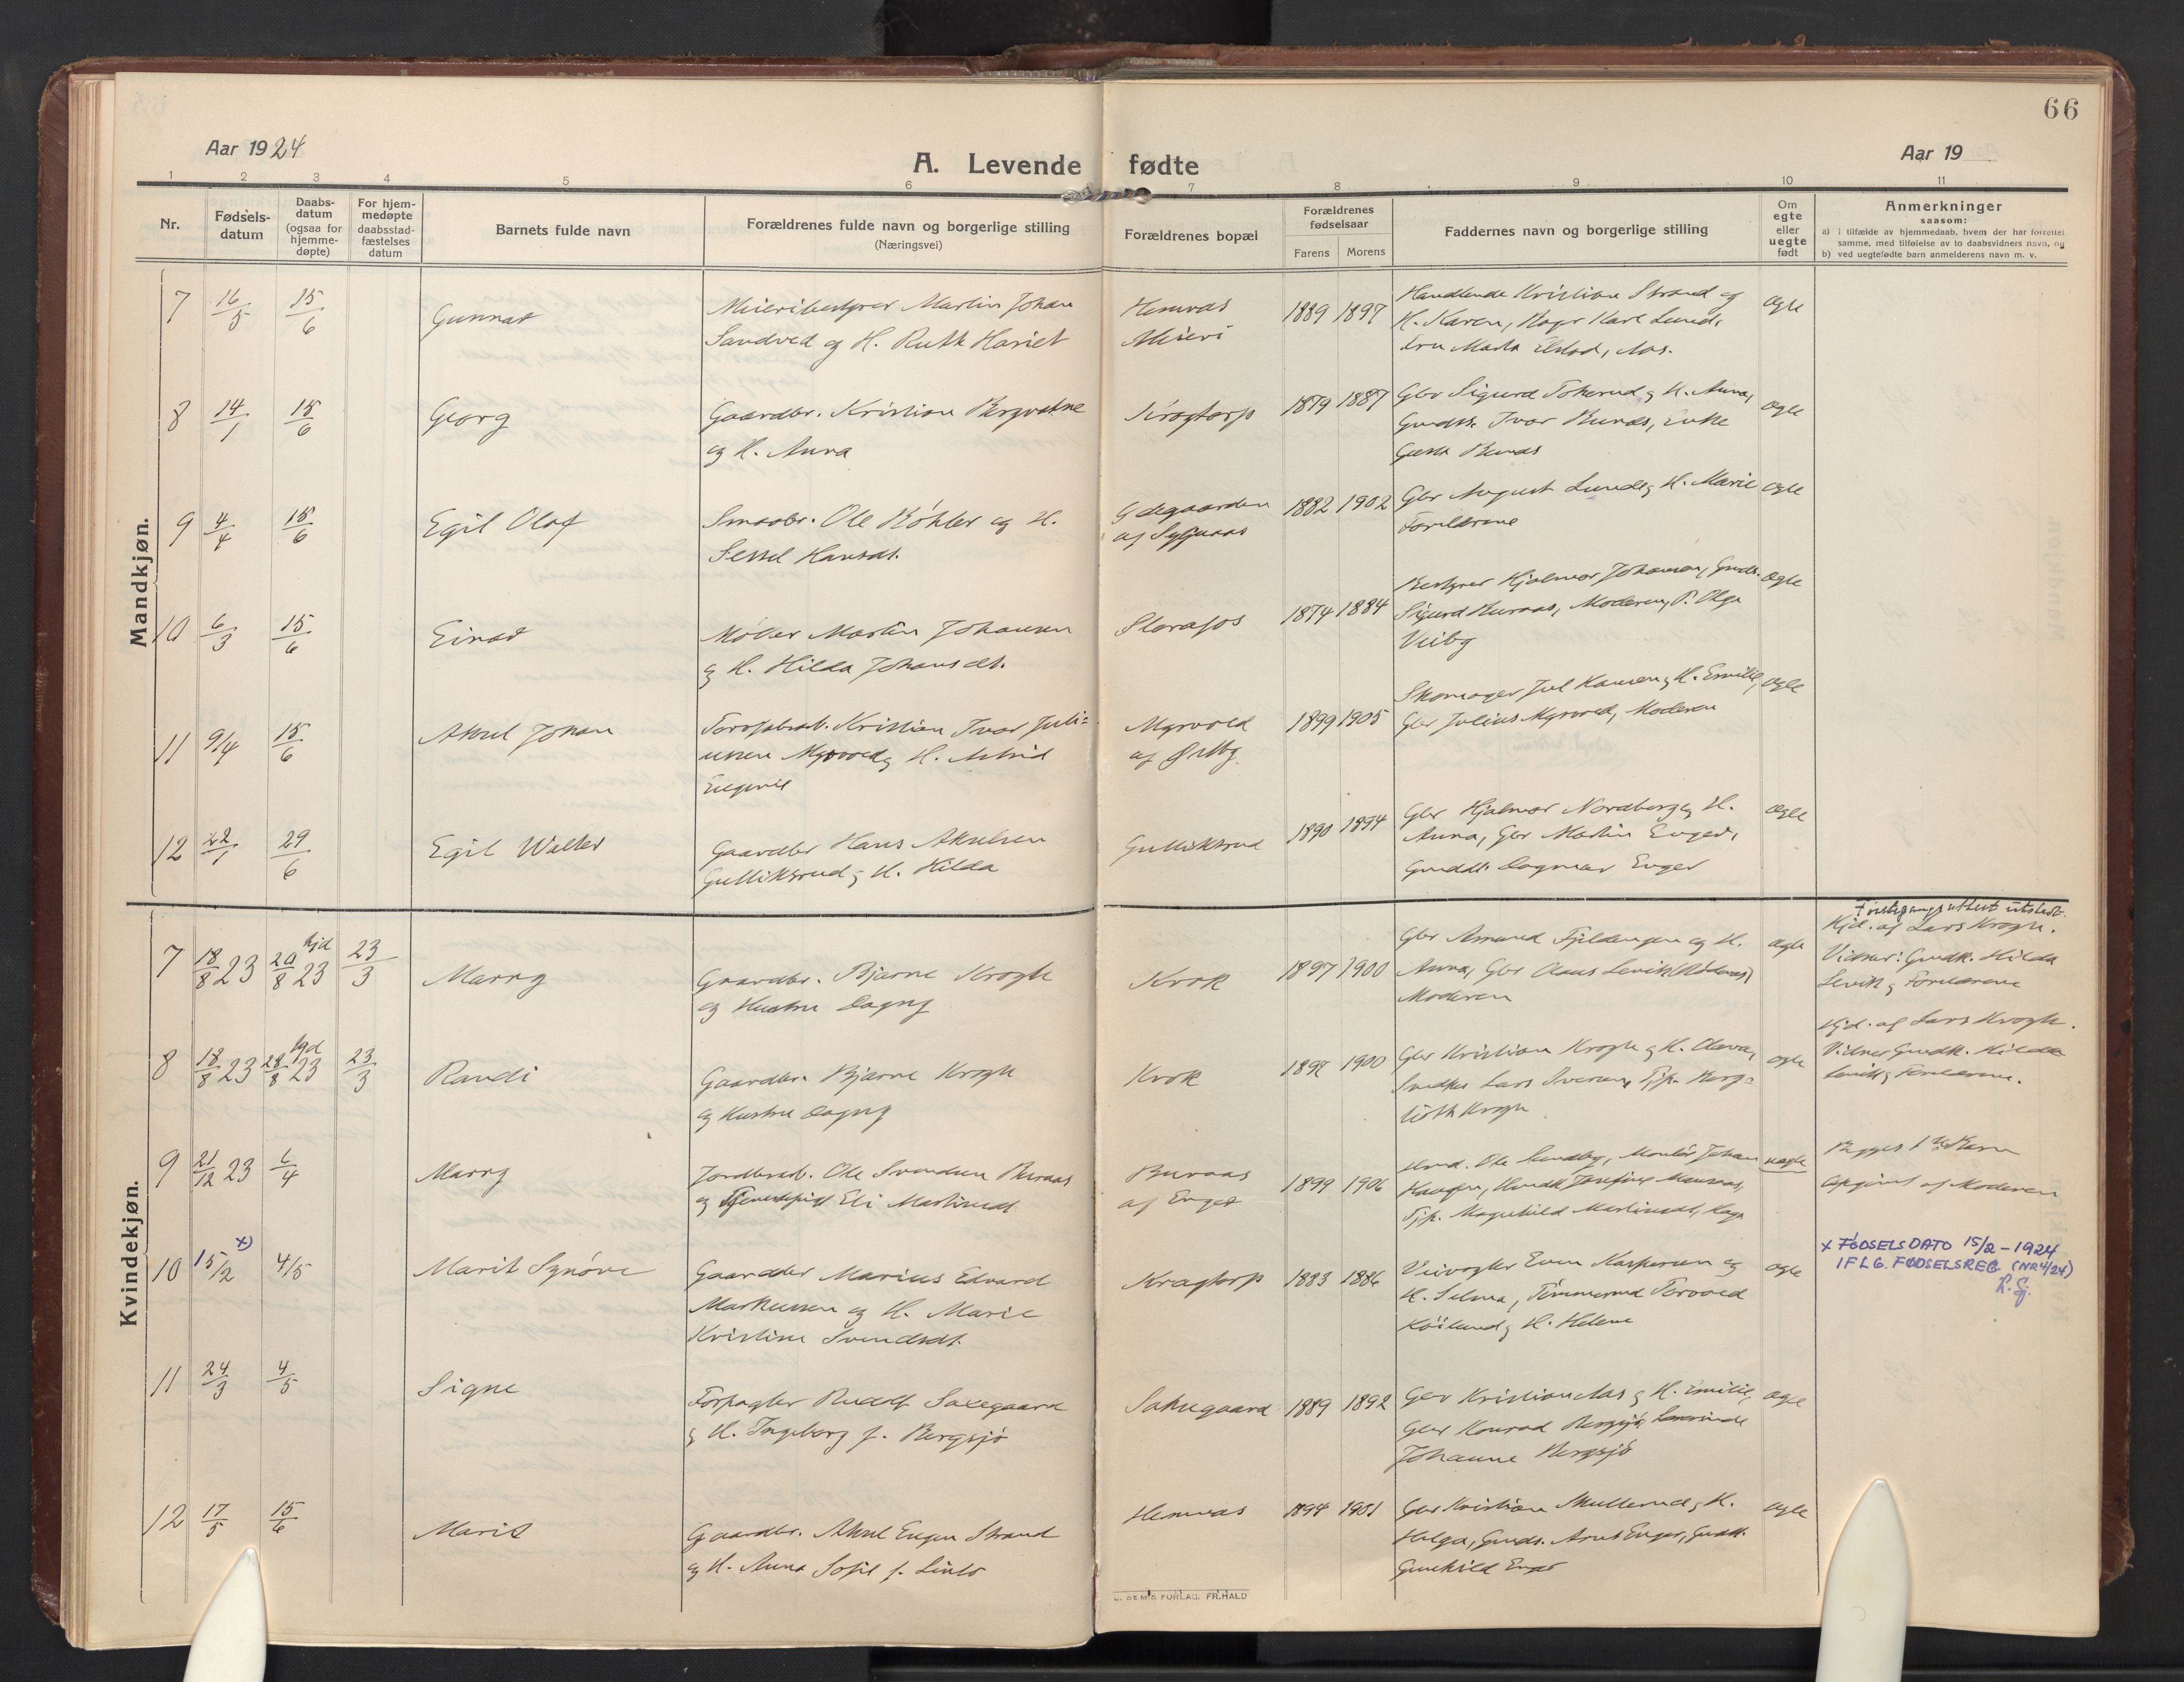 66
Aar 1924
A. Levende fødte
Aar 19
1 2 3 4 5 6 7 8 9 10 11
Nr.
Fødsels-
datum
Daabs-
datum
(ogsaa for
hjemme-
døpte)
For hjem-
medøpte
daabsstad-
fæstelses
datum
Barnets fulde navn
Forældrenes fulde navn og borgerlige stilling
(Næringsvei)
Forældrenes bopæl
Forældrenes
fødselsaar
Farens Morens
Faddernes navn og borgerlige stilling
Om
egte
eller
uegte
født
Anmerkninger
saasom:
a) i tilfælde av hjemmedaab, hvem der har forrettet
samme, med tilføielse av to daabsvidners navn, og
b) ved uegtefødte barn anmelderens navn m. v.
Mandkjøn.
7 16/5 15/6 Gunnar
Meieribestyrer Martin Johan
Sandved og H. Ruth Hariet
Hemnæs
Meieri
1889 1897
Handlende Kristian Strand og
H. Karen, Karl Lund,
Fru Aas.
ægte
8 14/1 15/6 Georg
Gaardbr. Kristian
og H. Anna
Krogtorp
1879 1887
Gbr Sigurd og H. Anna,
Gards. Ivar Enke
ægte
9 4/4 15/6 Egil Olaf
Smaabr. Ole Köhler og H.
Sessel Hansdt.
Ødegaarden
af
1882 1902
Gbr August Lund og H. Marie
Forældrene
ægte
10 6/3 15/6 Einar
Møller Martin Johansen
og H. Hilda Johansdt.
Storafos
1874 1884
Bestyrer Hjalmar Johansen, Gards.
Sigurd Buraas, Moderen, P. Olga
Veiby
ægte
11 9/4 15/6 Aksel Johan
Kristian Ivar Juli-
ussen Myrvold og H. Astrid
Myrvold
af
1899 1905
Skomager Jul Hansen og H. Emilie,
Gbr Julius Myrvold, Moderen
ægte
12 22/1 29/6 Egil Walter
Gaardbr Hans Akselsen
Gulliksrud og H. Hilda
Gulliksrud
1890 1894
Gbr Hjalmar Nordberg og H.
Anna, Gbr Martin Enger,
Gardd. Dagmar Enger
ægte
Kvindekjøn.
7 18/8 23 hjd 20/8 23 23/3 Marry
Gaardbr. Bjarne Krogh
og Hustru Dagny
Krok
1897 1900
Gbr Amund Fjeldengen og H.
Anna, Gbr Olaus Levik
Moderen
ægte
Førstegangsattest utstedt.
Hjd. af Lars Krogh.
Vidner: Gardk. Hilda
Levik og Forældrene
8 18/8 23 hjd 20/8 23 23/3 Randi
Gaardbr. Bjarne Krogh
og Hustru Dagny
Krok
1897 1900
Gbr Kristian Krogh og H. Oleva,
Snedker Lars Iversen, Tjp. Berg-
lioth Krogh
ægte
Hjd. af Lars Krogh.
Vidner Gardk. Hilda
Levik og Forældrene.
9 21/12 23 6/4 Marry
Jordbrarb. Ole Svendsen Buraas
og Tjenestepige Eli Martinsdt.
Buraas
af Enger
1899 1906
Ole Sundby, Montør Johan
Haugen,
Tjp. Magnhild Martinsdt,
uægte
Begges 1ste Barn
Opgivet af Moderen
10 15/2 x) 4/5 Marit Synøve
Gaardbr Marius Edvard
Markussen og H. Marie
Kristine Svendsdt.
Krogtorp
1883 1886
Veivogter Even Kaspersen og
H. Selma, Tømmermd Torvald
og H. Helene
ægte
x FØDSELSDATO 15/2 - 1924
IFLG. FØDSELSREG. (NR 4/24)
11 24/3 4/5 Signe
Forpagter Rudolf
og H. Ingeborg f. Bergsjø
1889 1892
Gbr Kristian Aas og H. Emilie,
Gbr Konrad Bergsjø,
Johanne Bergsjø
ægte
12 17/5 15/6 Marit
Gaardbr. Aksel Eugen Strand
og H. Anna Sofie f.
Hemnæs
1894 1901
Gbr Kristian Skullerud og H.
Helga, Gards. Arnt Enger, Gardk.
Gunhild Enger
ægte
FORLAG. FR. HALD